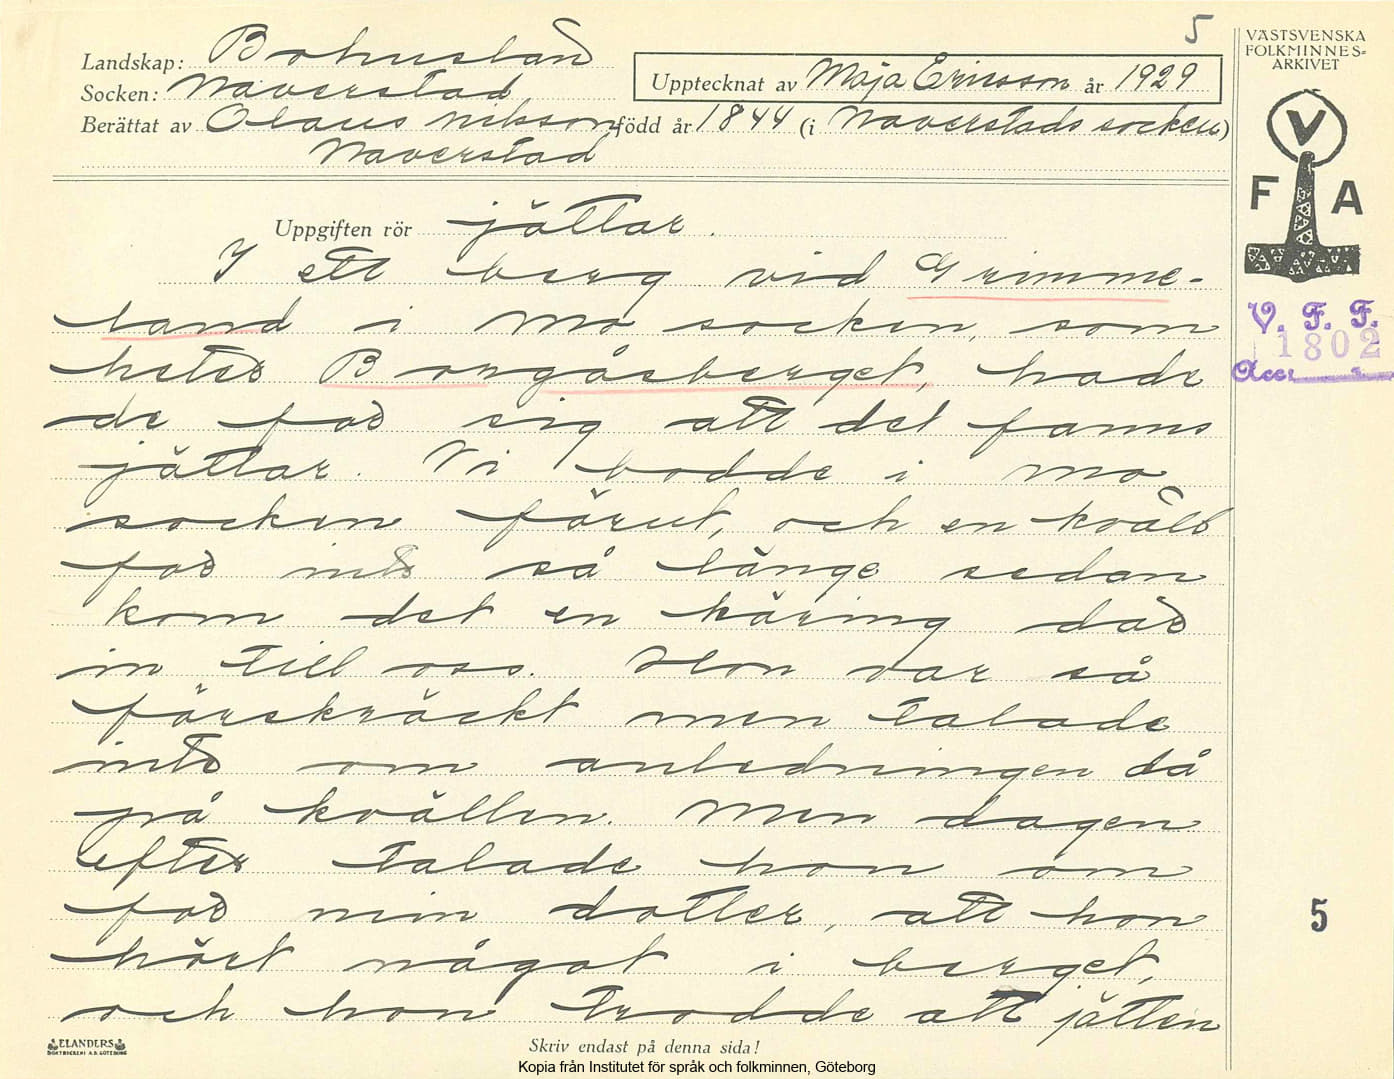 5
Landskap: Bohuslän
Socken: Naverstad
Upptecknat av Maja Ericsson år 1929
Berättat av Olaus Nilsson född år 1844 (i Naverstads socken)
Naverstad
VÄSTSVENSKA
FOLKMINNES-
ARKIVET
V
F A
V. F. F.
1802
Acc:
Uppgiften rör jättar.
I ett berg vid Grimme-
land i Mo socken, som
heter Borgåsberget, hade
de för sig att det fanns
jättar. Vi bodde i Mo
socken förut, och en kväll
för inte så länge sedan
kom det en käring där
in till oss. Hon var så
förskräckt men talade
inte om anledningen då
på kvällen. Men dagen
efter talade hon om
för min dotter, att hon
hört något i berget,
och hon trodde att jätten
5
ELANDERS
BOKTRYCKERI A.B. GÖTEBORG
Skriv endast på denna sida!
Kopia från Institutet för språk och folkminnen, Göteborg